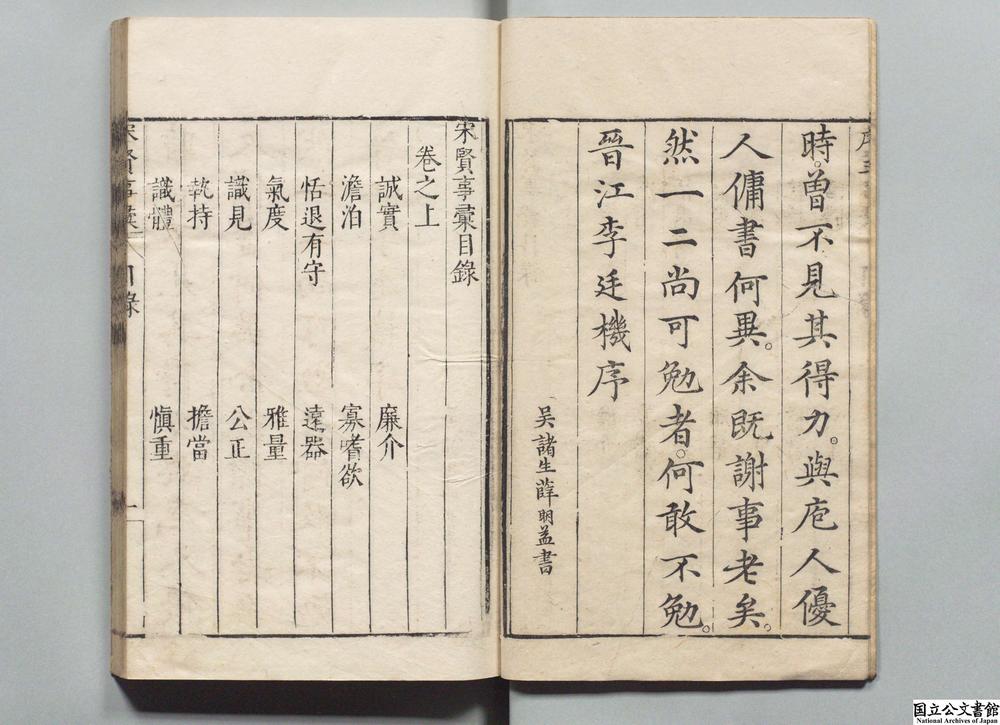 時。曾不見其得力。與庖人優
人傭書何異。余既謝事老矣。
然一二尚可勉者。何敢不勉。
晉江李廷機序
吳諸生薛明益書
宋賢事彙目錄
卷之上
誠實 廉介
澹泊 寡嗜欲
恬退有守 遠器
氣度 雅量
識見 公正
執持 擔當
識體 慎重
宋賢事彙 目錄 一
国立公文書館
National Archives of Japan